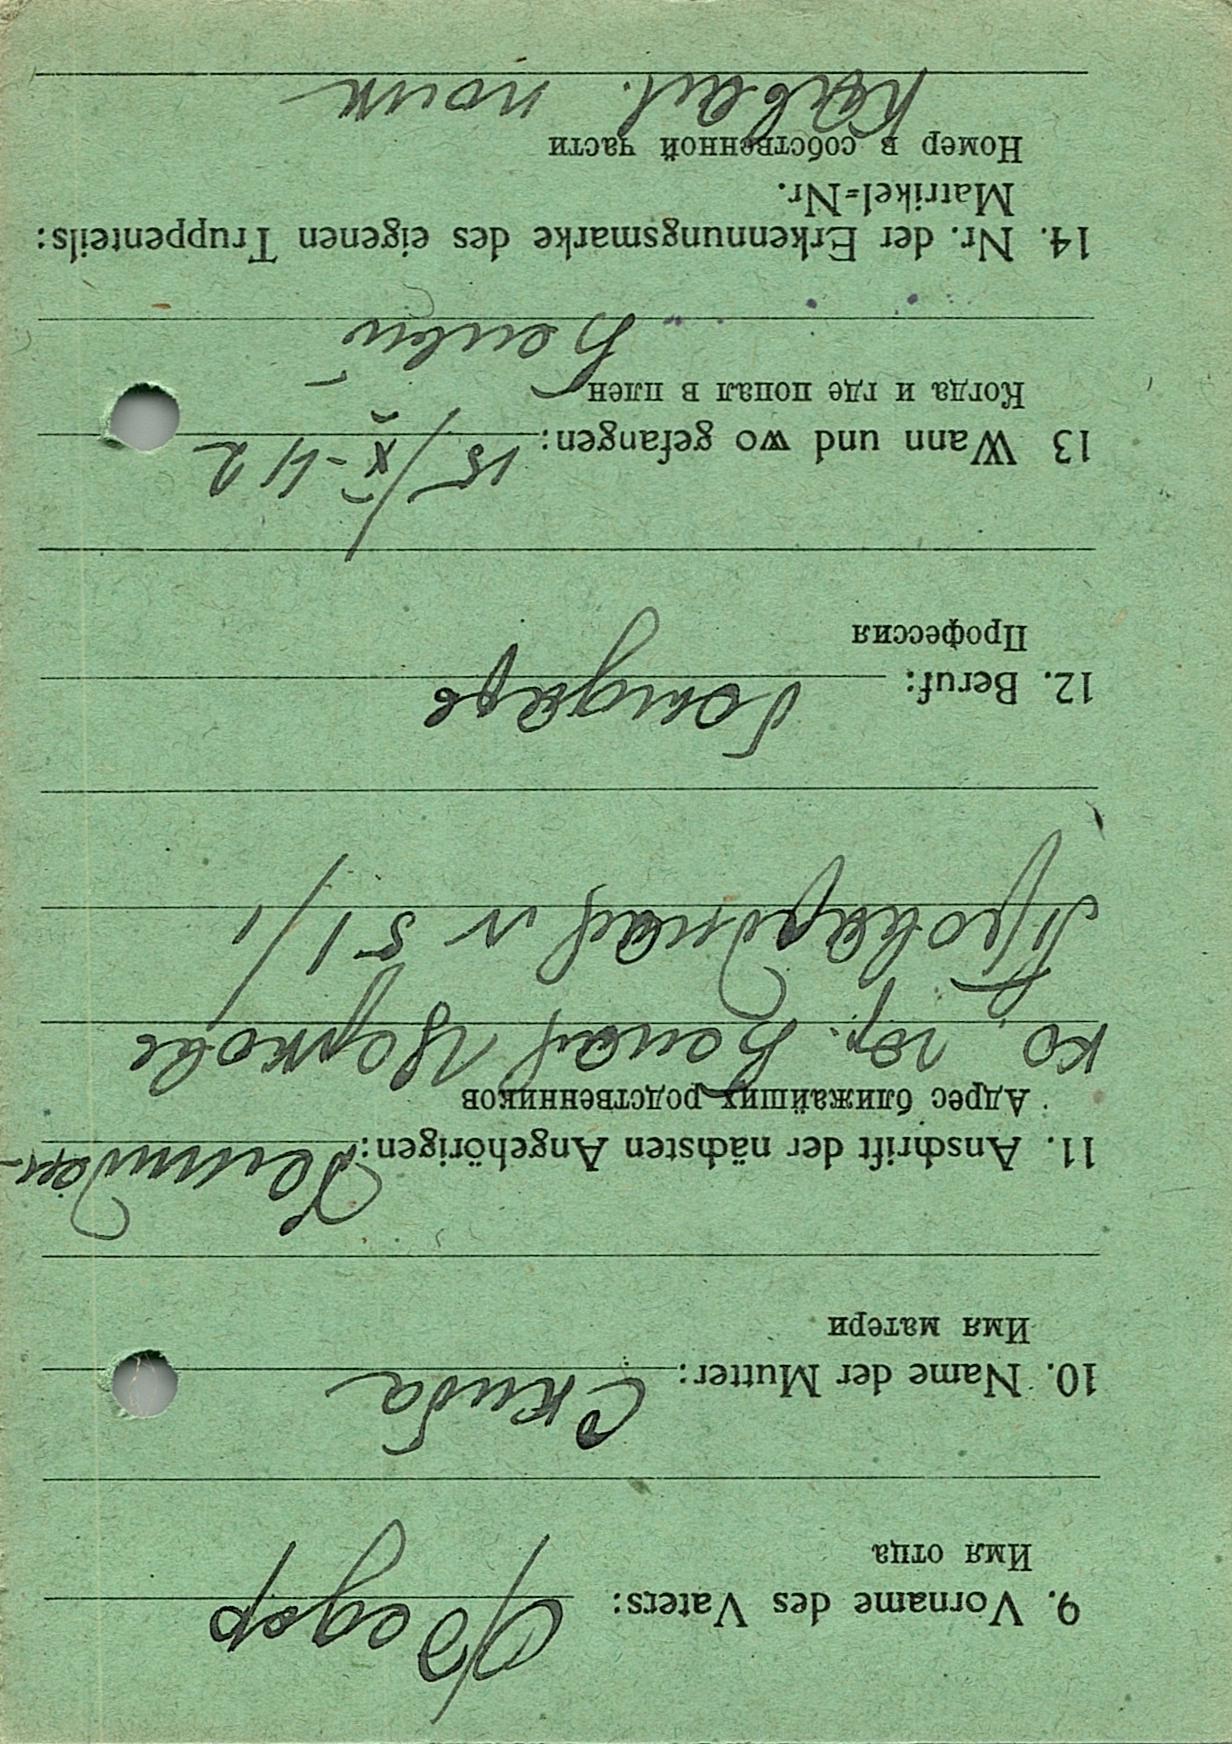 9. Vorname des Vaters: Федор
Имя отца
10. Name der Mutter: Скиба
Имя матери
11. Anschrift der nächsten Angehörigen:
Адрес ближайших родственников
гор. Белая Церковь
№ 51/1
12. Beruf: Бондарь
Профессия
13 Wann und wo gefangen: 15/X-42
Когда и где попал в плен
14. Nr. der Erkennungsmarke des eigenen Truppenteils:
Matrikel=Nr.
Номер в собственной части
Кавал. полк